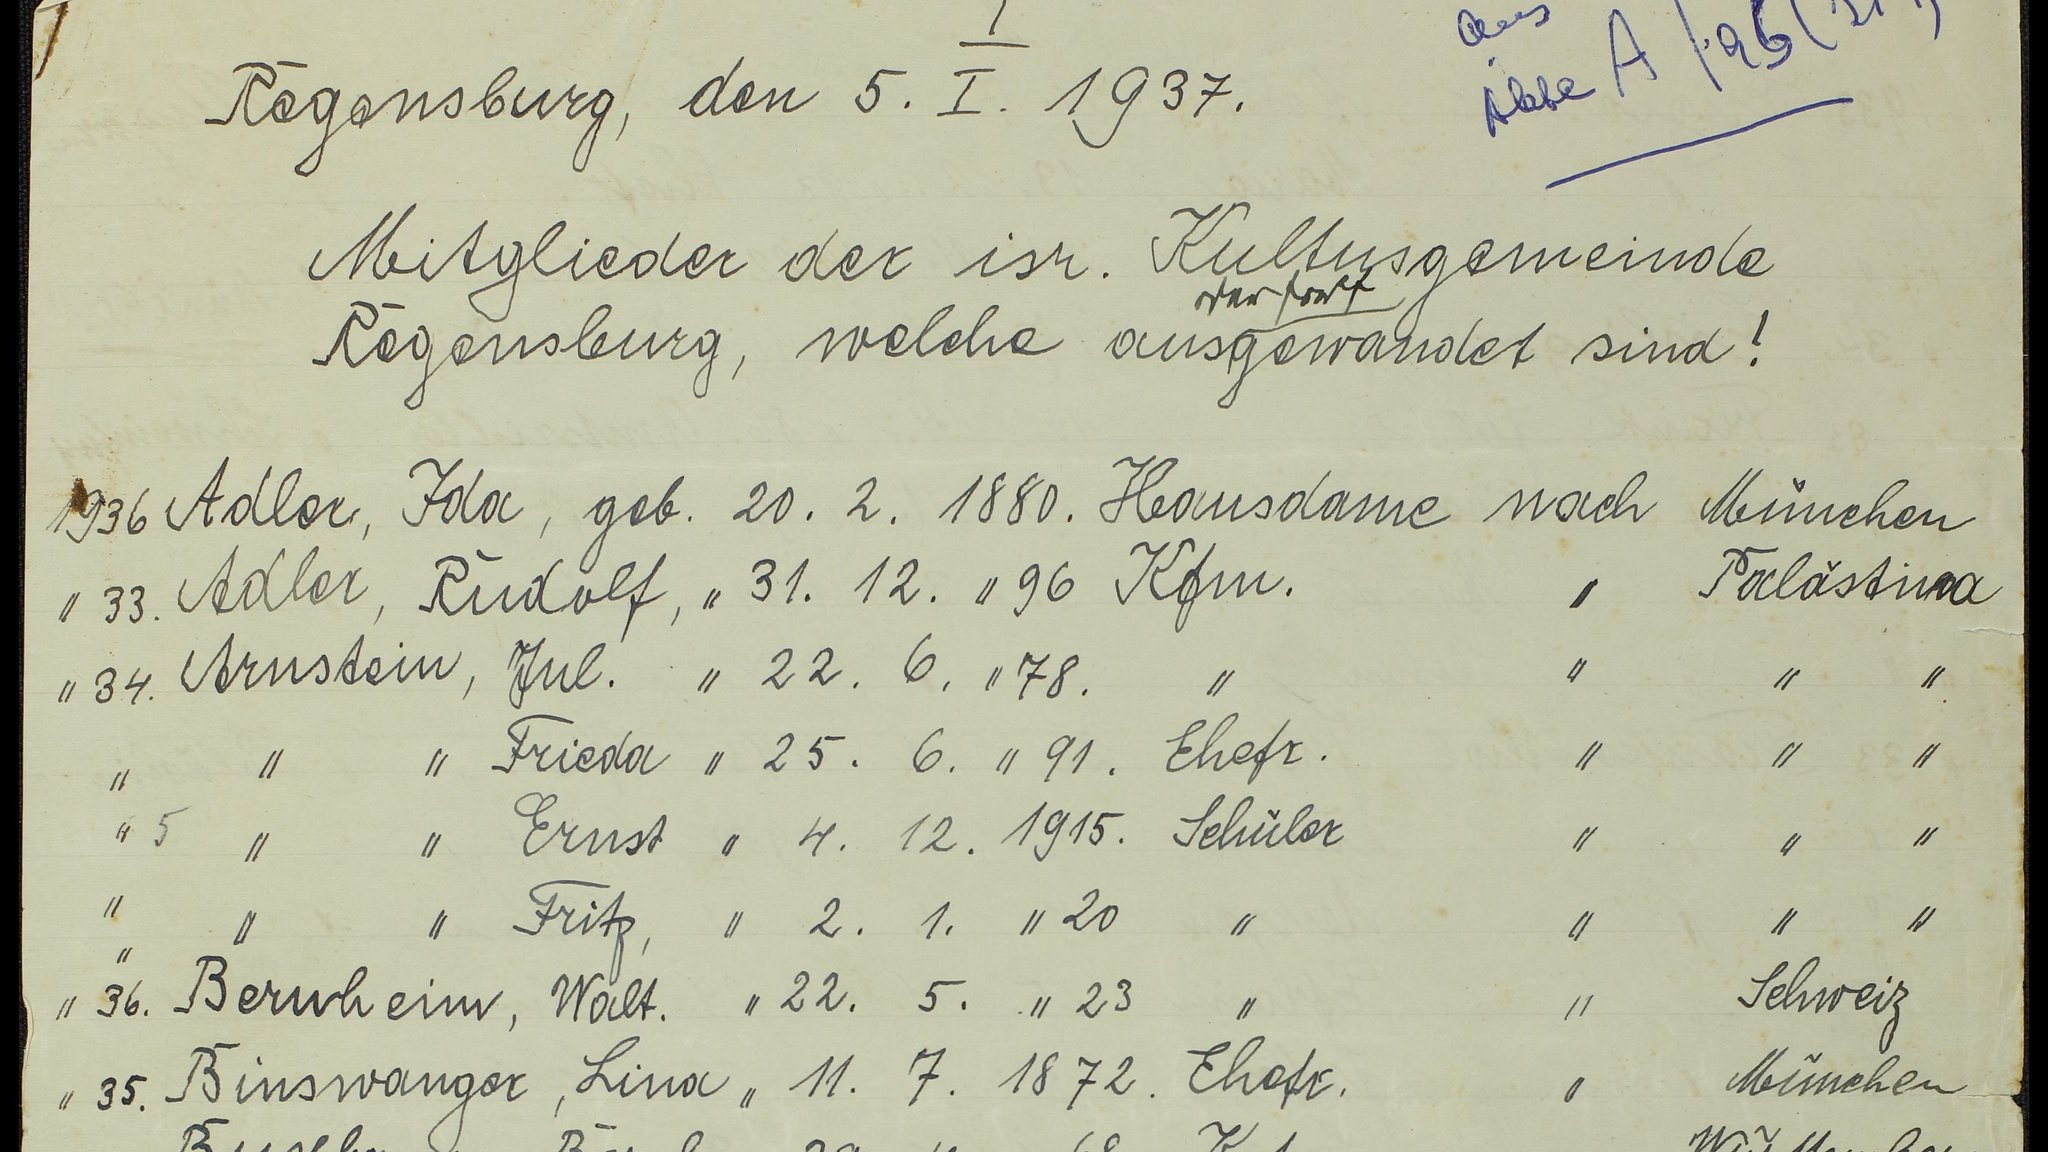 I
Regensburg, den 5. I. 1937.
A
Mitglieder der isr. Kultusgemeinde
oder fort
Regensburg, welche ausgewandet sind!
1936 Adler, Ida, geb. 20. 2. 1880. Hausdame nach München
" 33. Adler, Rudolf, " 31. 12. " 96 Kfm. " Palästina
" 34. Arnstein, Jul. " 22. 6. " 78. " " " "
" " " Frieda " 25. 6. " 91. Ehefr. " " "
" 5 " " Ernst " 4. 12. 1915. Schüler " " "
" " " Fritz, " 2. 1. " 20 " " " "
"
" 36. Bernheim, Walt. " 22. 5. " 23 " " Schweiz
" 35. Binswanger, Lina " 11. 7. 1872. Ehefr. " München